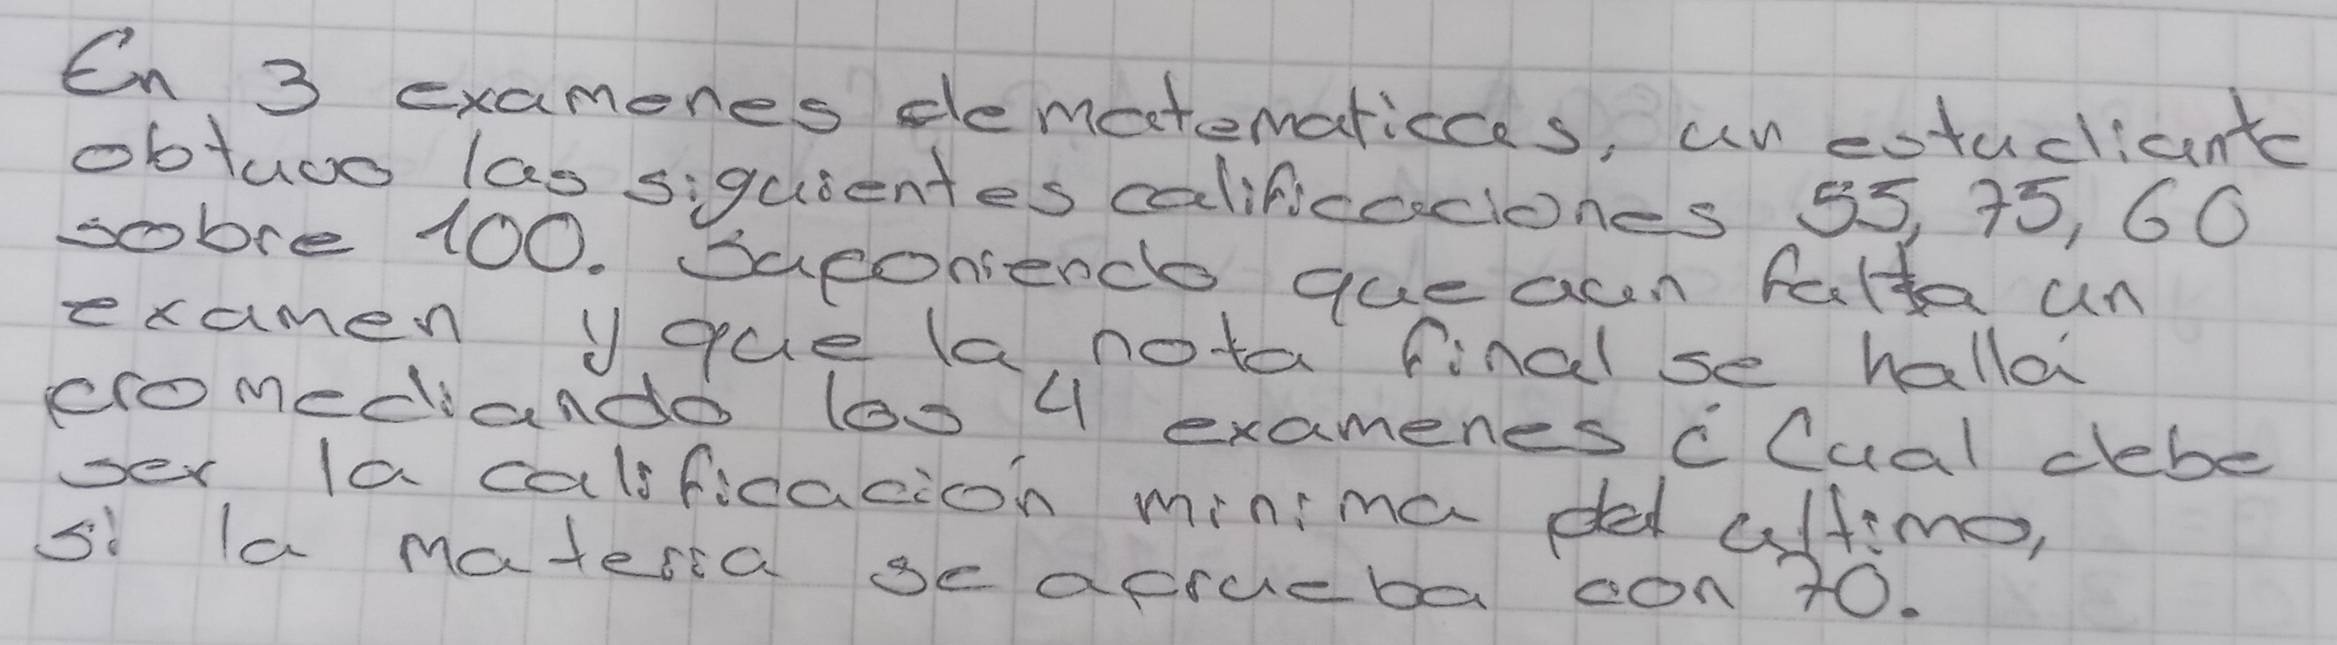 En 3 examenes de matematicas, un estudiante
obtuvo las siguientes calificaciones 55, 75, 60
sobre 100. Suponiendo que aun falta un
examen y que la nota final se halla
promediando los 4 examenes ¿Cual debe
ser la calificación minima del ultimo,
si la materia se aprueba con 70.